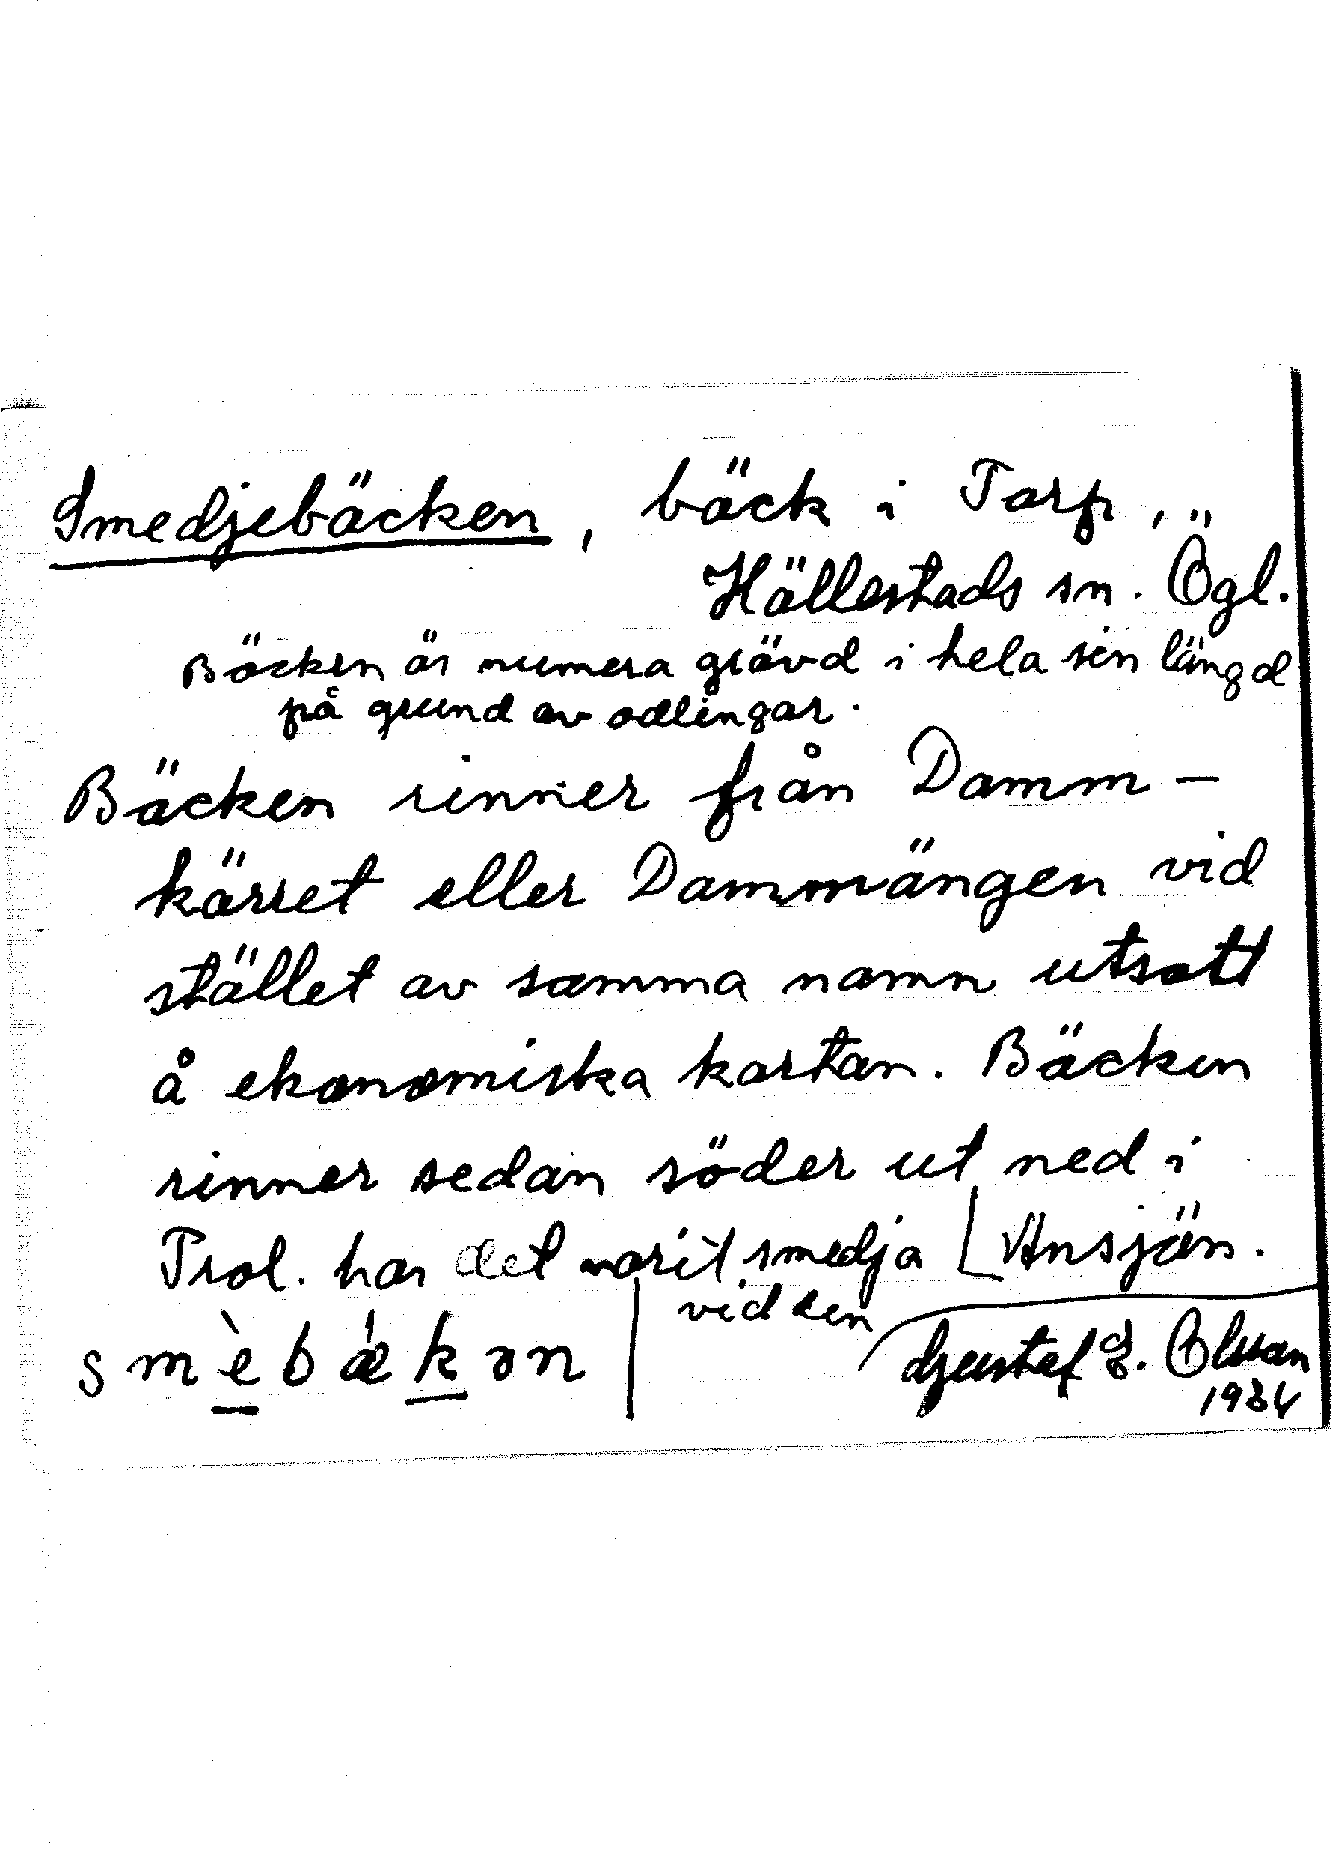 Smedjebäcken, bäck i Torp,
Hällestads sn. Ögl.
Bäcken är numera grävd i hela sin längd
på grund av odlingar.
Bäcken rinner från Damm-
kärret eller Dammängen vid
stället av samma namn utsatt
å ekonomiska kartan. Bäcken
rinner sedan söder ut ned i
Ansjön.
Trol. har det varit smedja
vid den
smèbǽkən
Gustaf E. Olsson